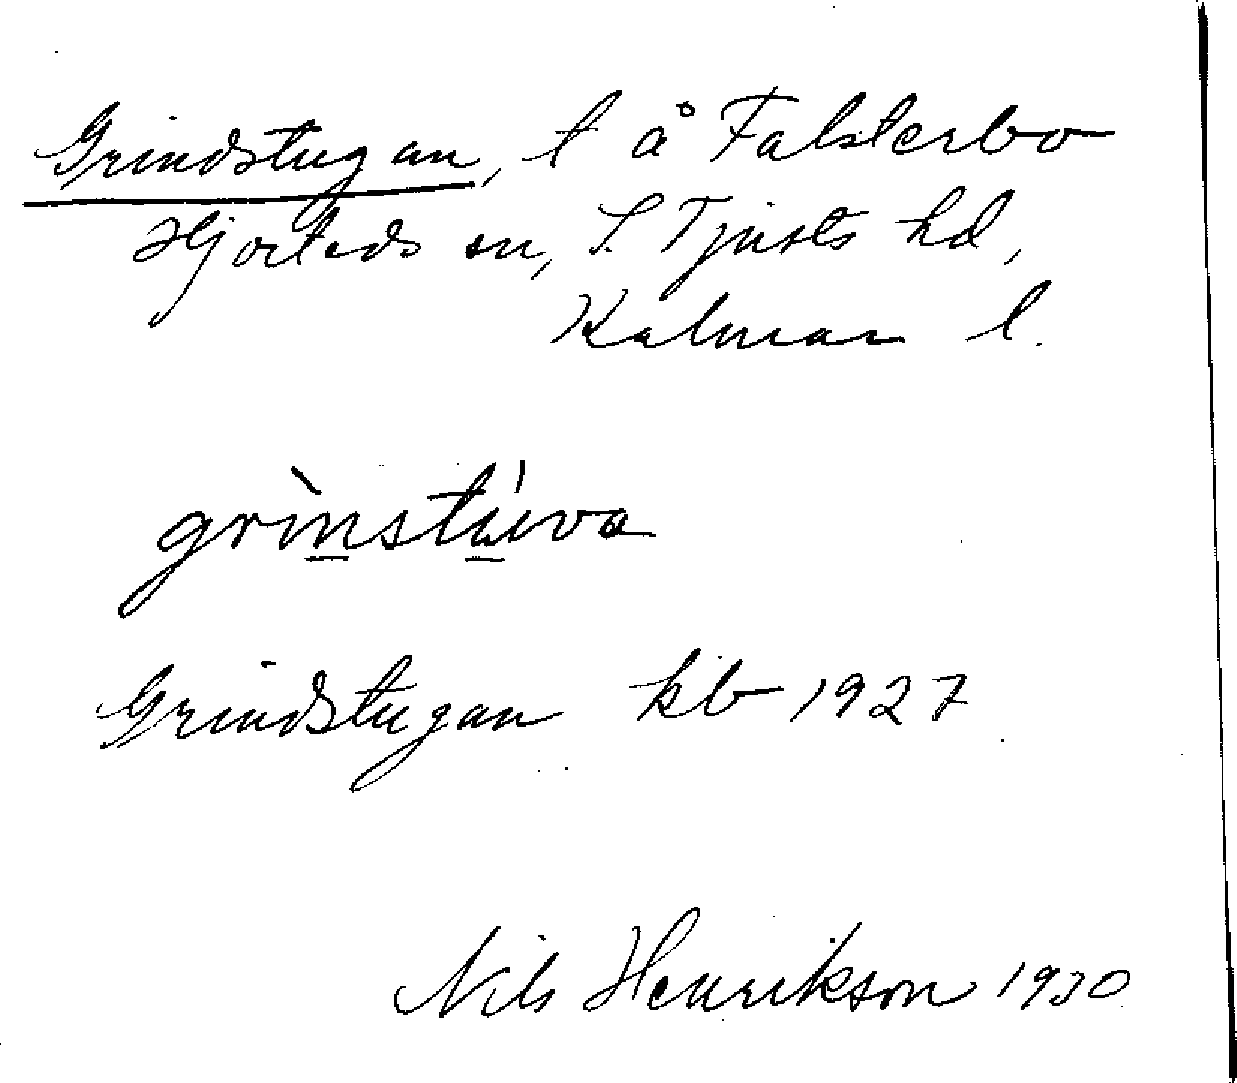 Grindstugan, t å Falsterbo
Hjorteds sn, S. Tjusts hd,
Kalmar l.
grìnstú̲va
Grindstugan kb 1927
Nils Henrikson 1930